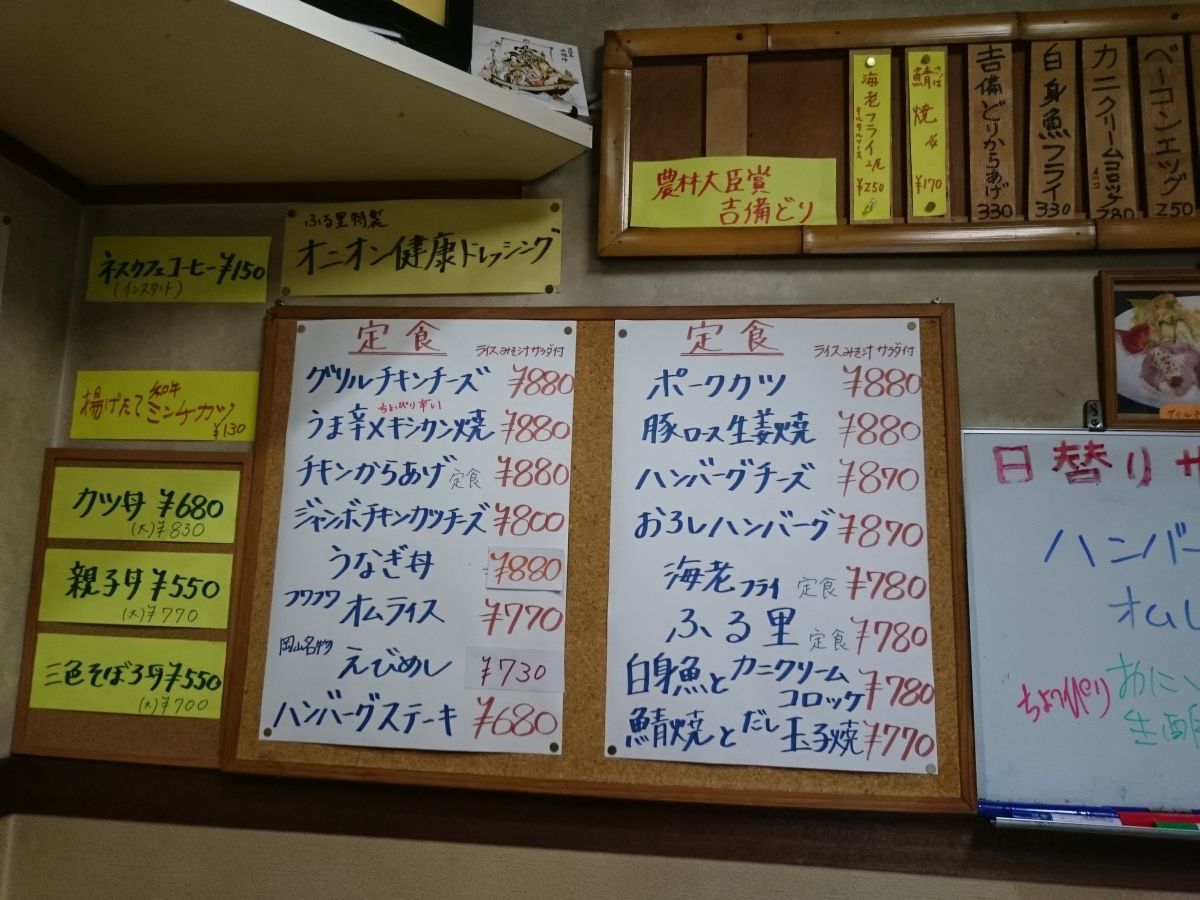 海老フライ 2尾
タルタルソース
¥250
さば
鯖焼
¥170
吉備どりからあげ 330
白身魚フライ 330
カニクリームコロッケ 280
ベーコンエッグ 250
農林大臣賞
吉備どり
ふる里特製
オニオン健康ドレッシング
ネスカフェコーヒー ¥150
(インスタント)
揚げたて 和牛
ミンチカツ
¥130
カツ丼 ¥680
(大)¥830
親子丼 ¥550
(大)¥770
三色そぼろ丼 ¥550
(大)¥700
定食
ライスみそ汁サラダ付
グリルチキンチーズ ¥880
ちょっぴり辛い
うま辛メキシカン焼 ¥880
チキンからあげ 定食 ¥880
ジャンボチキンカツチーズ ¥800
うなぎ丼 ¥880
フワフワ オムライス ¥770
岡山名物
えびめし ¥730
ハンバーグステーキ ¥680
定食
ライスみそ汁サラダ付
ポークカツ ¥880
豚ロース生姜焼 ¥880
ハンバーグチーズ ¥870
おろしハンバーグ ¥870
海老フライ 定食 ¥780
ふる里 定食 ¥780
白身魚とカニクリーム
コロッケ ¥780
鯖焼とだし玉子焼 ¥770
日替りサ
ハンバー
オムレ
ちょっぴり おに
生酢